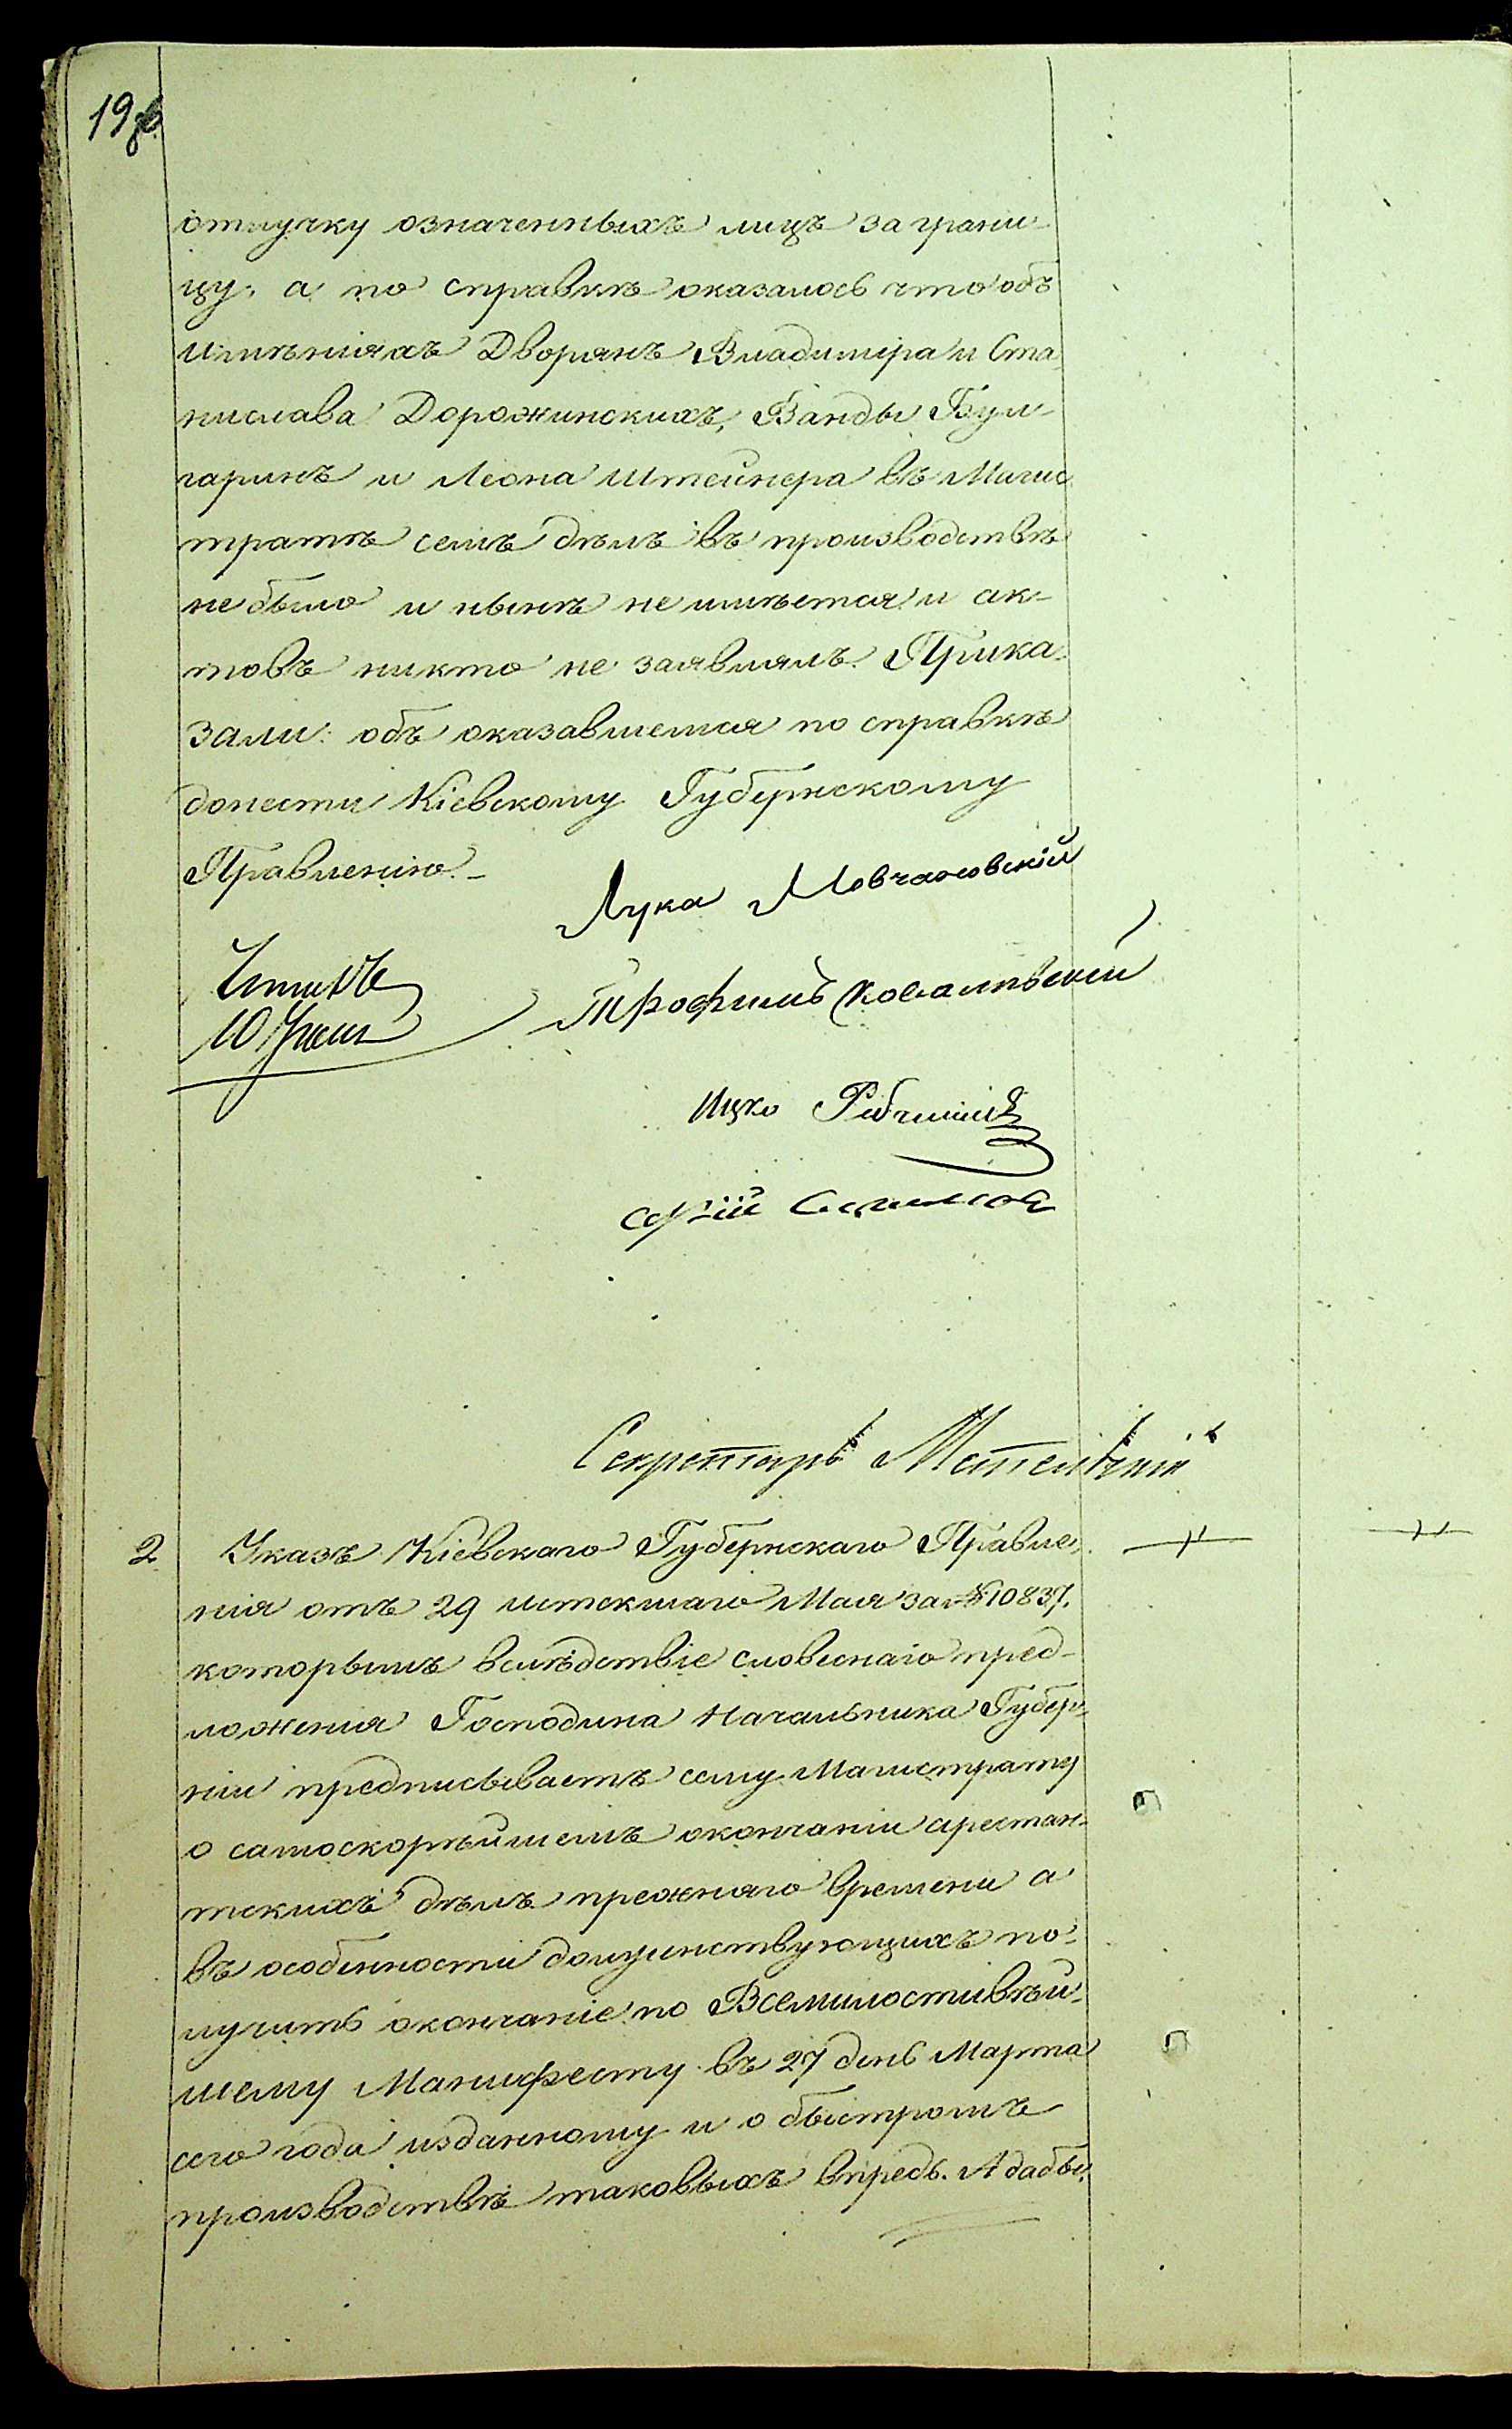 отлучку означенныхъ лицъ за грани-
цу, а по справкѣ оказалось что объ
имѣніяхъ Дворянъ Владиміра и Ста
нислава Дорожинскихъ, Ванды Бул-
гаринъ и Леона Штейнера въ Магис
тратѣ семъ дѣлъ въ производствѣ
не было и нынѣ не имѣется и ак-
товъ никто не заявлялъ. Прика-
зали: объ оказавшемся по справкѣ
донести Кіевскому Губернскому
Правленію.-
Лука Мовчановскій
Трофимъ Ковалевскій
Ицко
Секретарь
2 Указъ Кіевскаго Губернскаго Правле-
нія отъ 29 истекшаго Мая за № 10837.
которымъ вслѣдствіе словеснаго пред-
ложенія Господина Начальника Губер-
ніи предписываетъ сему Магистрату
о самоскорѣйшемъ окончаніи арестан-
тскихъ дѣлъ прежняго времени а
въ особенности долженствующихъ по-
лучить окончаніе по Всемилостивѣй-
шему Манифесту въ 27 день Марта
сего года изданному и о быстромъ
производствѣ таковыхъ впредь. А дабы